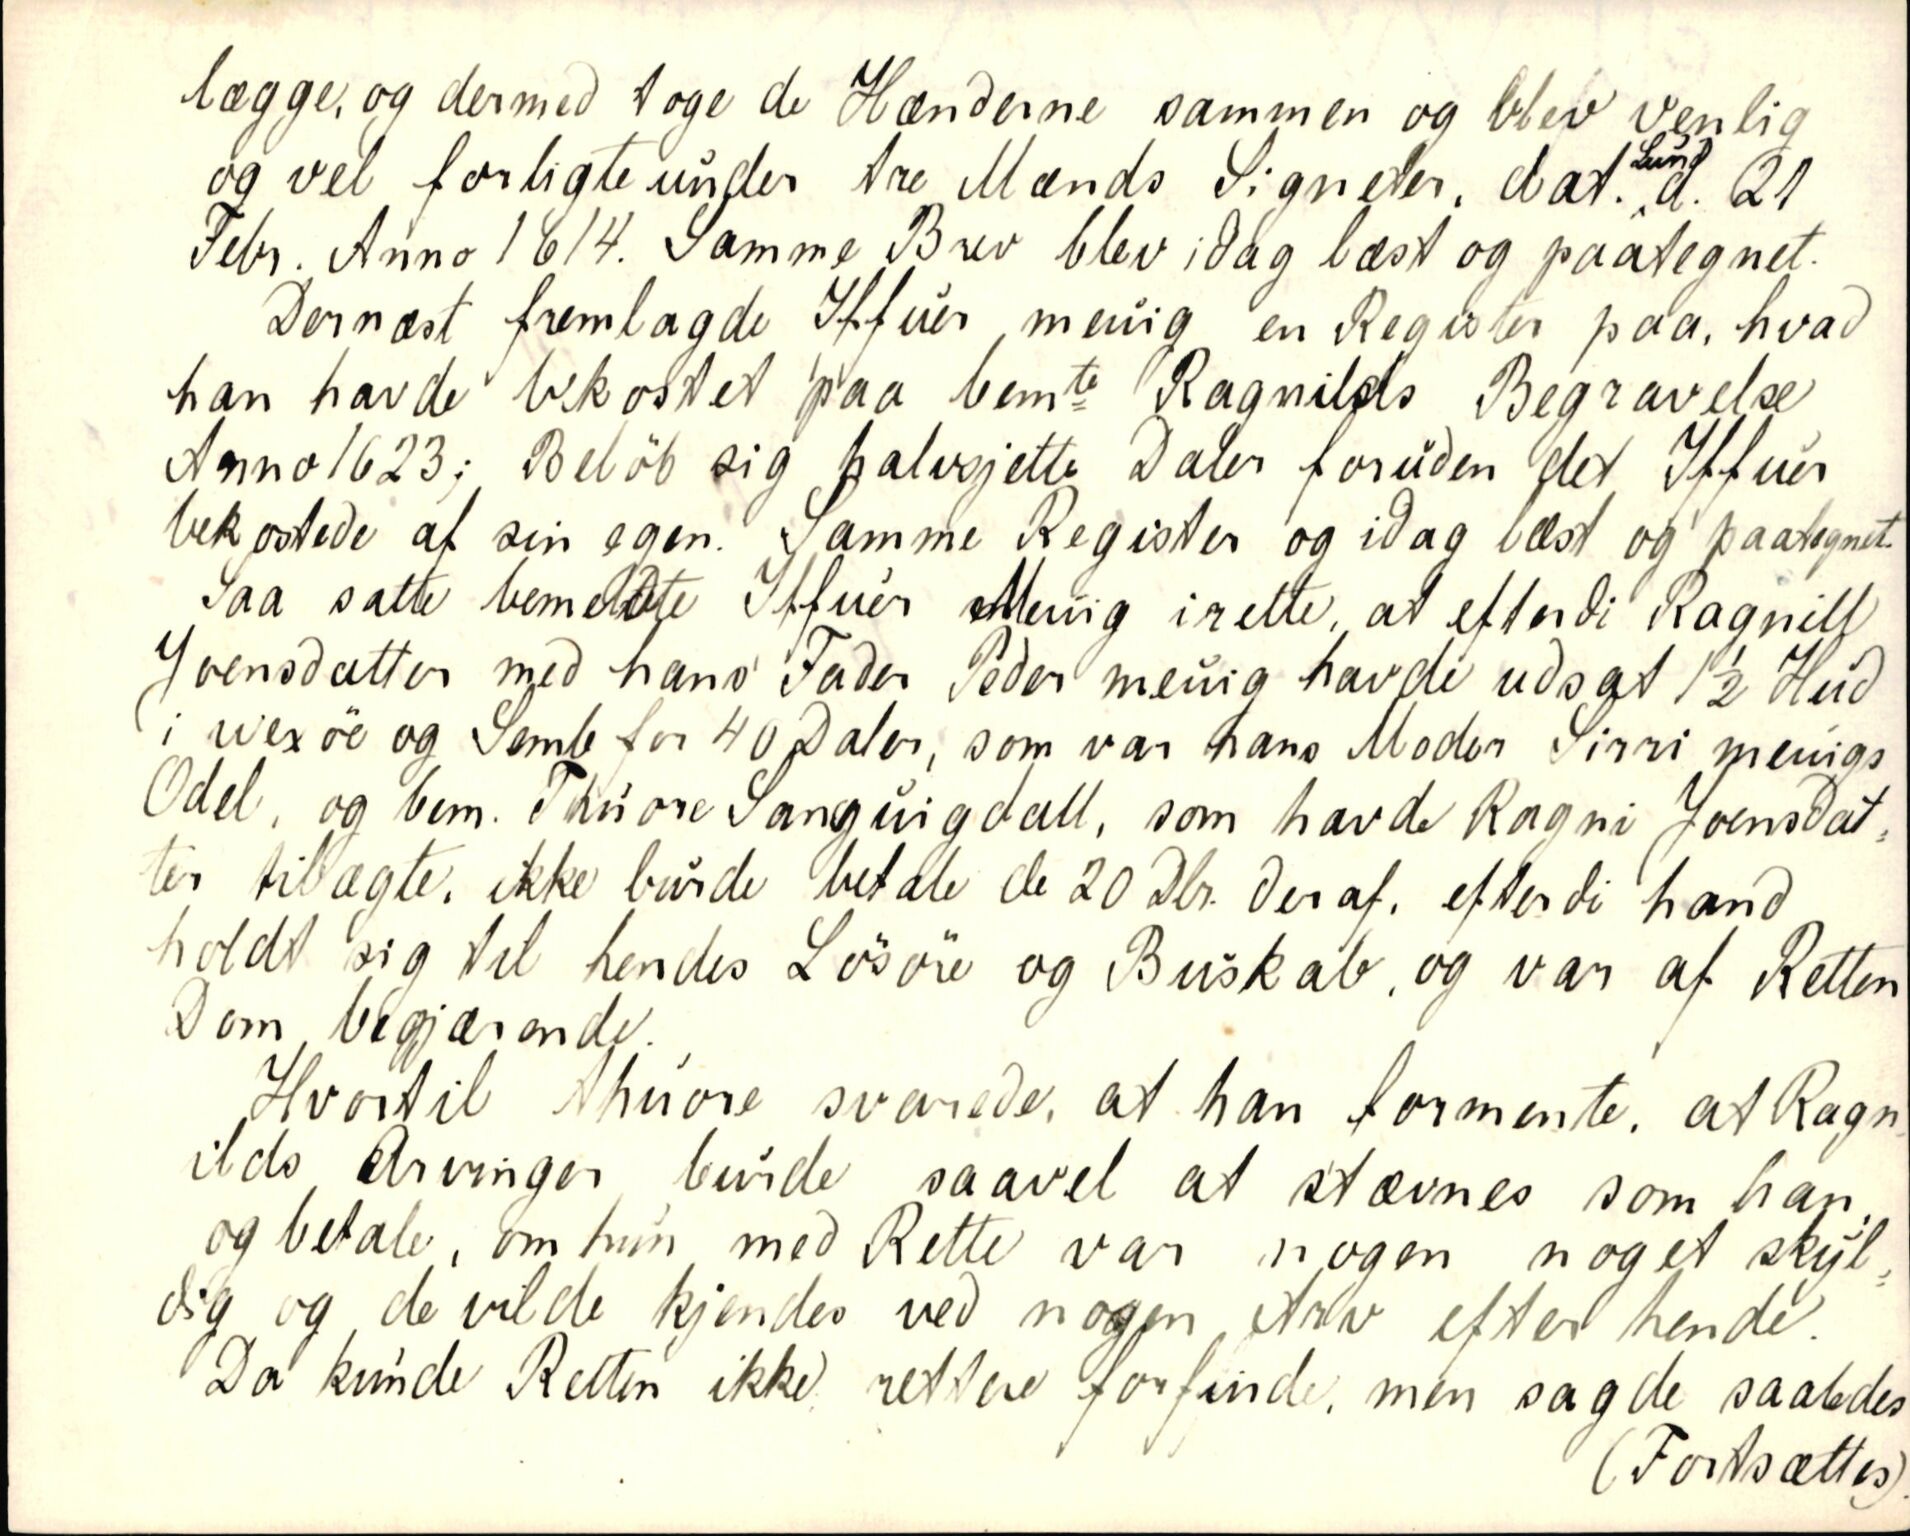 lægge, og dermed toge de Hænderne sammen og blev venlig
og vel forligte under tre Mænds Signeter, dat. Lund d. 21
Febr. Anno 1614. Samme Brev blev idag læst og paategnet.
Dernæst fremlagde Iffuer meuig en Register paa, hvad
han havde bekostet paa bemte Ragnilds Begravelse
Anno 1623; Belöb sig halvsjette Daler foruden det Iffuer
bekostede af sin egen. Samme Register og idag læst og paategnet.
Saa satte bemeldte Iffuer Meuig irette, at efterdi Ragnill
Joensdatter med hans Fader Peder meuig havde udsat 1½ Hud
i wexöe og Semb for 40 Daler, som var hans Moder Sirri meuigs
Odel, og bem. Thuore Sanguigdall, som havde Ragni Joensdat=
ter tilægte, ikke burde betale de 20 Dlr. deraf, efterdi hand
holdt sig til hendes Lösöre og Buskab, og var af Retten
Dom begjærende.
Hvortil thuore svarede, at han formente, at Ragn
ilds Arvinger burde saavel at stævnes som han,
og betale, om hun med Rette var nogen noget skyl=
dig og de vilde kjendes ved nogen Arv efter hende.
Da kunde Retten ikke rettere forfinde, men sagde saaledes
(Fortsættes).